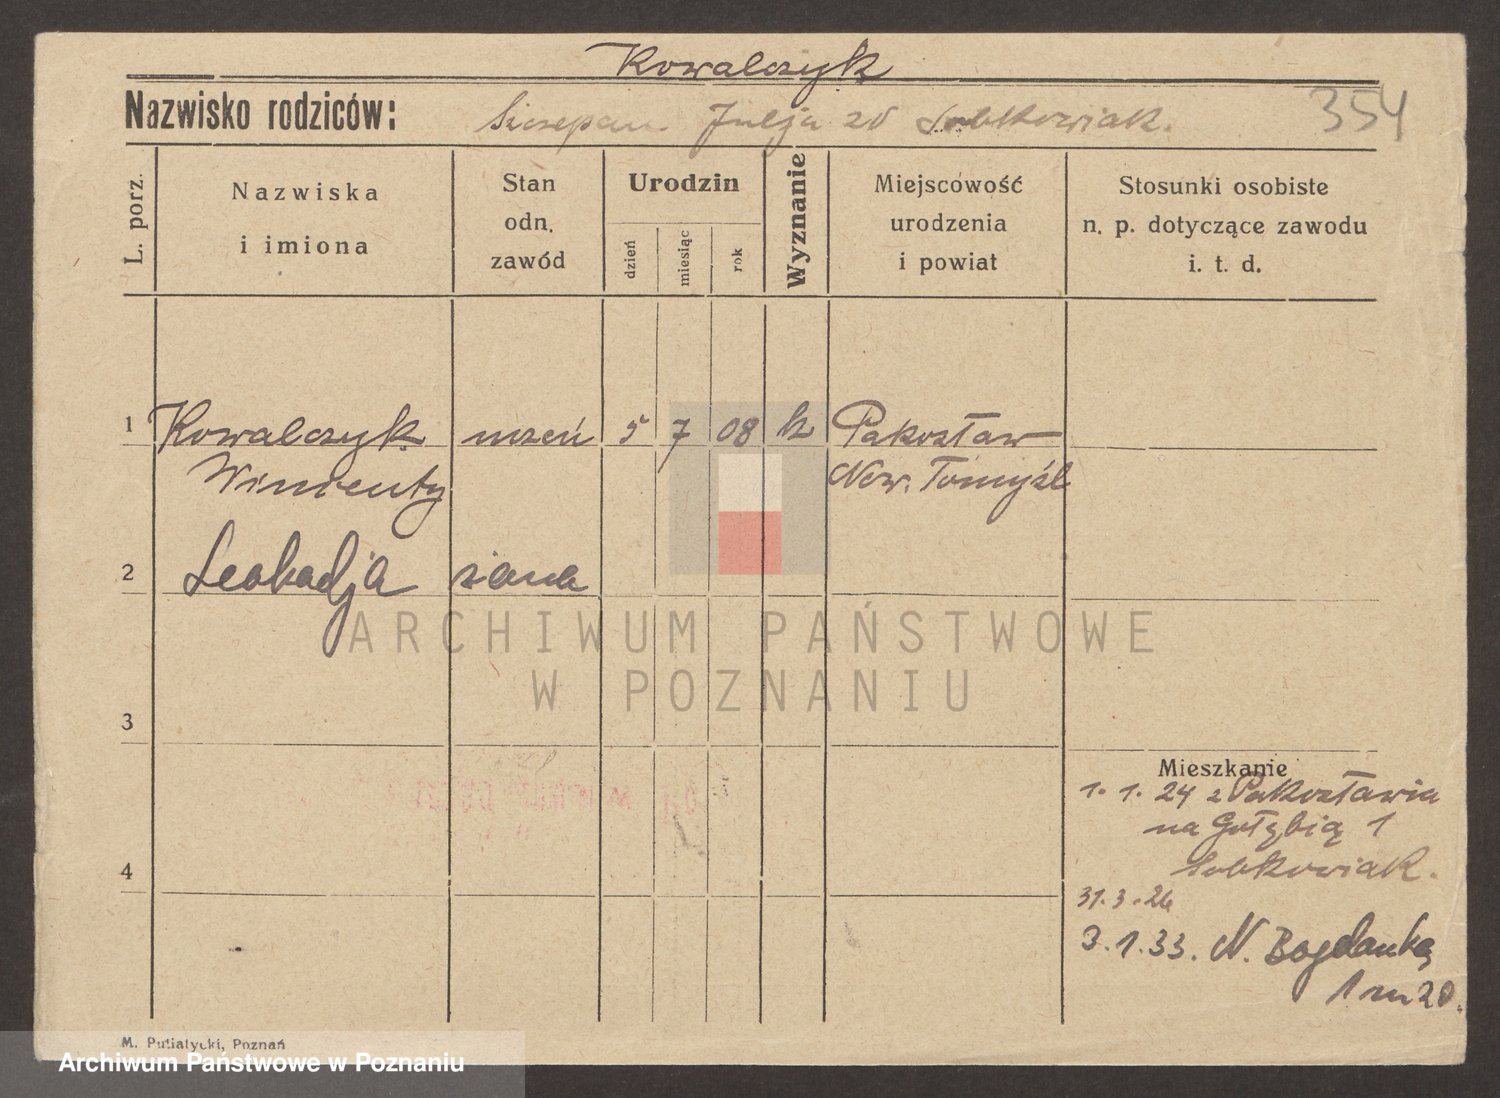 Kowalczyk
Nazwisko rodziców: Szczepan Julja zd Sobkowiak.
354
L. porz.
Nazwiska
i imiona
Stan
odn.
zawód
Urodzin
dzień
miesiąc
rok
Wyznanie
Miejscowość
urodzenia
i powiat
Stosunki osobiste
n. p. dotyczące zawodu
i. t. d.
1 Kowalczyk uczeń 5 7 08 k Pakosław
Wincenty Now. Tomyśl
2 Leokadja żona
ARCHIWUM PAŃSTWOWE
W POZNANIU
3
Mieszkanie
1. 1. 24 z Pakosławia
na Gołębią 1
Sobkowiak.
4
31.3.26
3.1.33. N. Bogdanką
1 m 20.
M. Putiatycki, Poznań
Archiwum Państwowe w Poznaniu